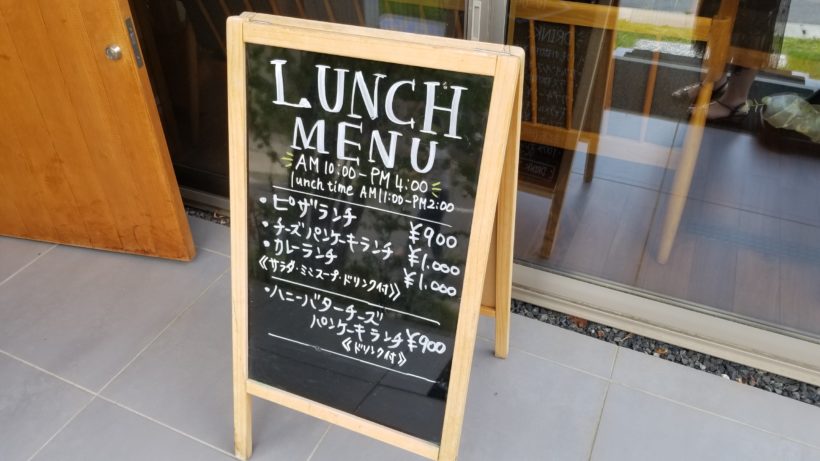 LUNCH
MENU
AM 10:00-PM 4:00
lunch time AM11:00-PM2:00
・ピザランチ ¥900
・チーズパンケーキランチ ¥1.000
・カレーランチ ¥1.000
《サラダ・ミニスープ・ドリンク付》
・ハニーバターチーズ
パンケーキランチ ¥900
《ドリンク付》
DRINK